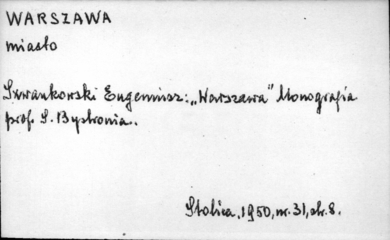 WARSZAWA
miasto
Szwankowski Eugeniusz: „Warszawa" Monografia
prof. S. Bystronia.
Stolica, 1950, nr. 31, str. 8.